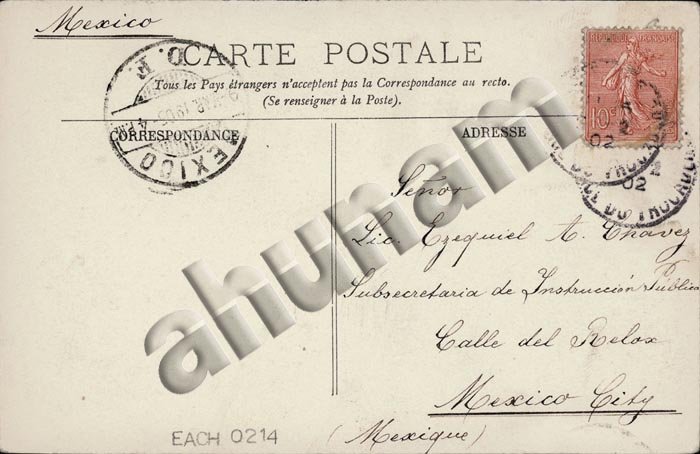 Mexico
CARTE POSTALE
Tous les Pays étrangers n'acceptent pas la Correspondance au recto.
(Se renseigner à la Poste).
CORRESPONDANCE
ADRESSE
REPUBLIQUE FRANÇAISE
10c
MEXICO
D. F.
02
02
DU TROCADERO
Señor
Lic. Ezequiel A. Chavez
Subsecretaria de Instrucción Pública
Calle del Relox
Mexico City
(Mexique)
EACH 0214
ahunam